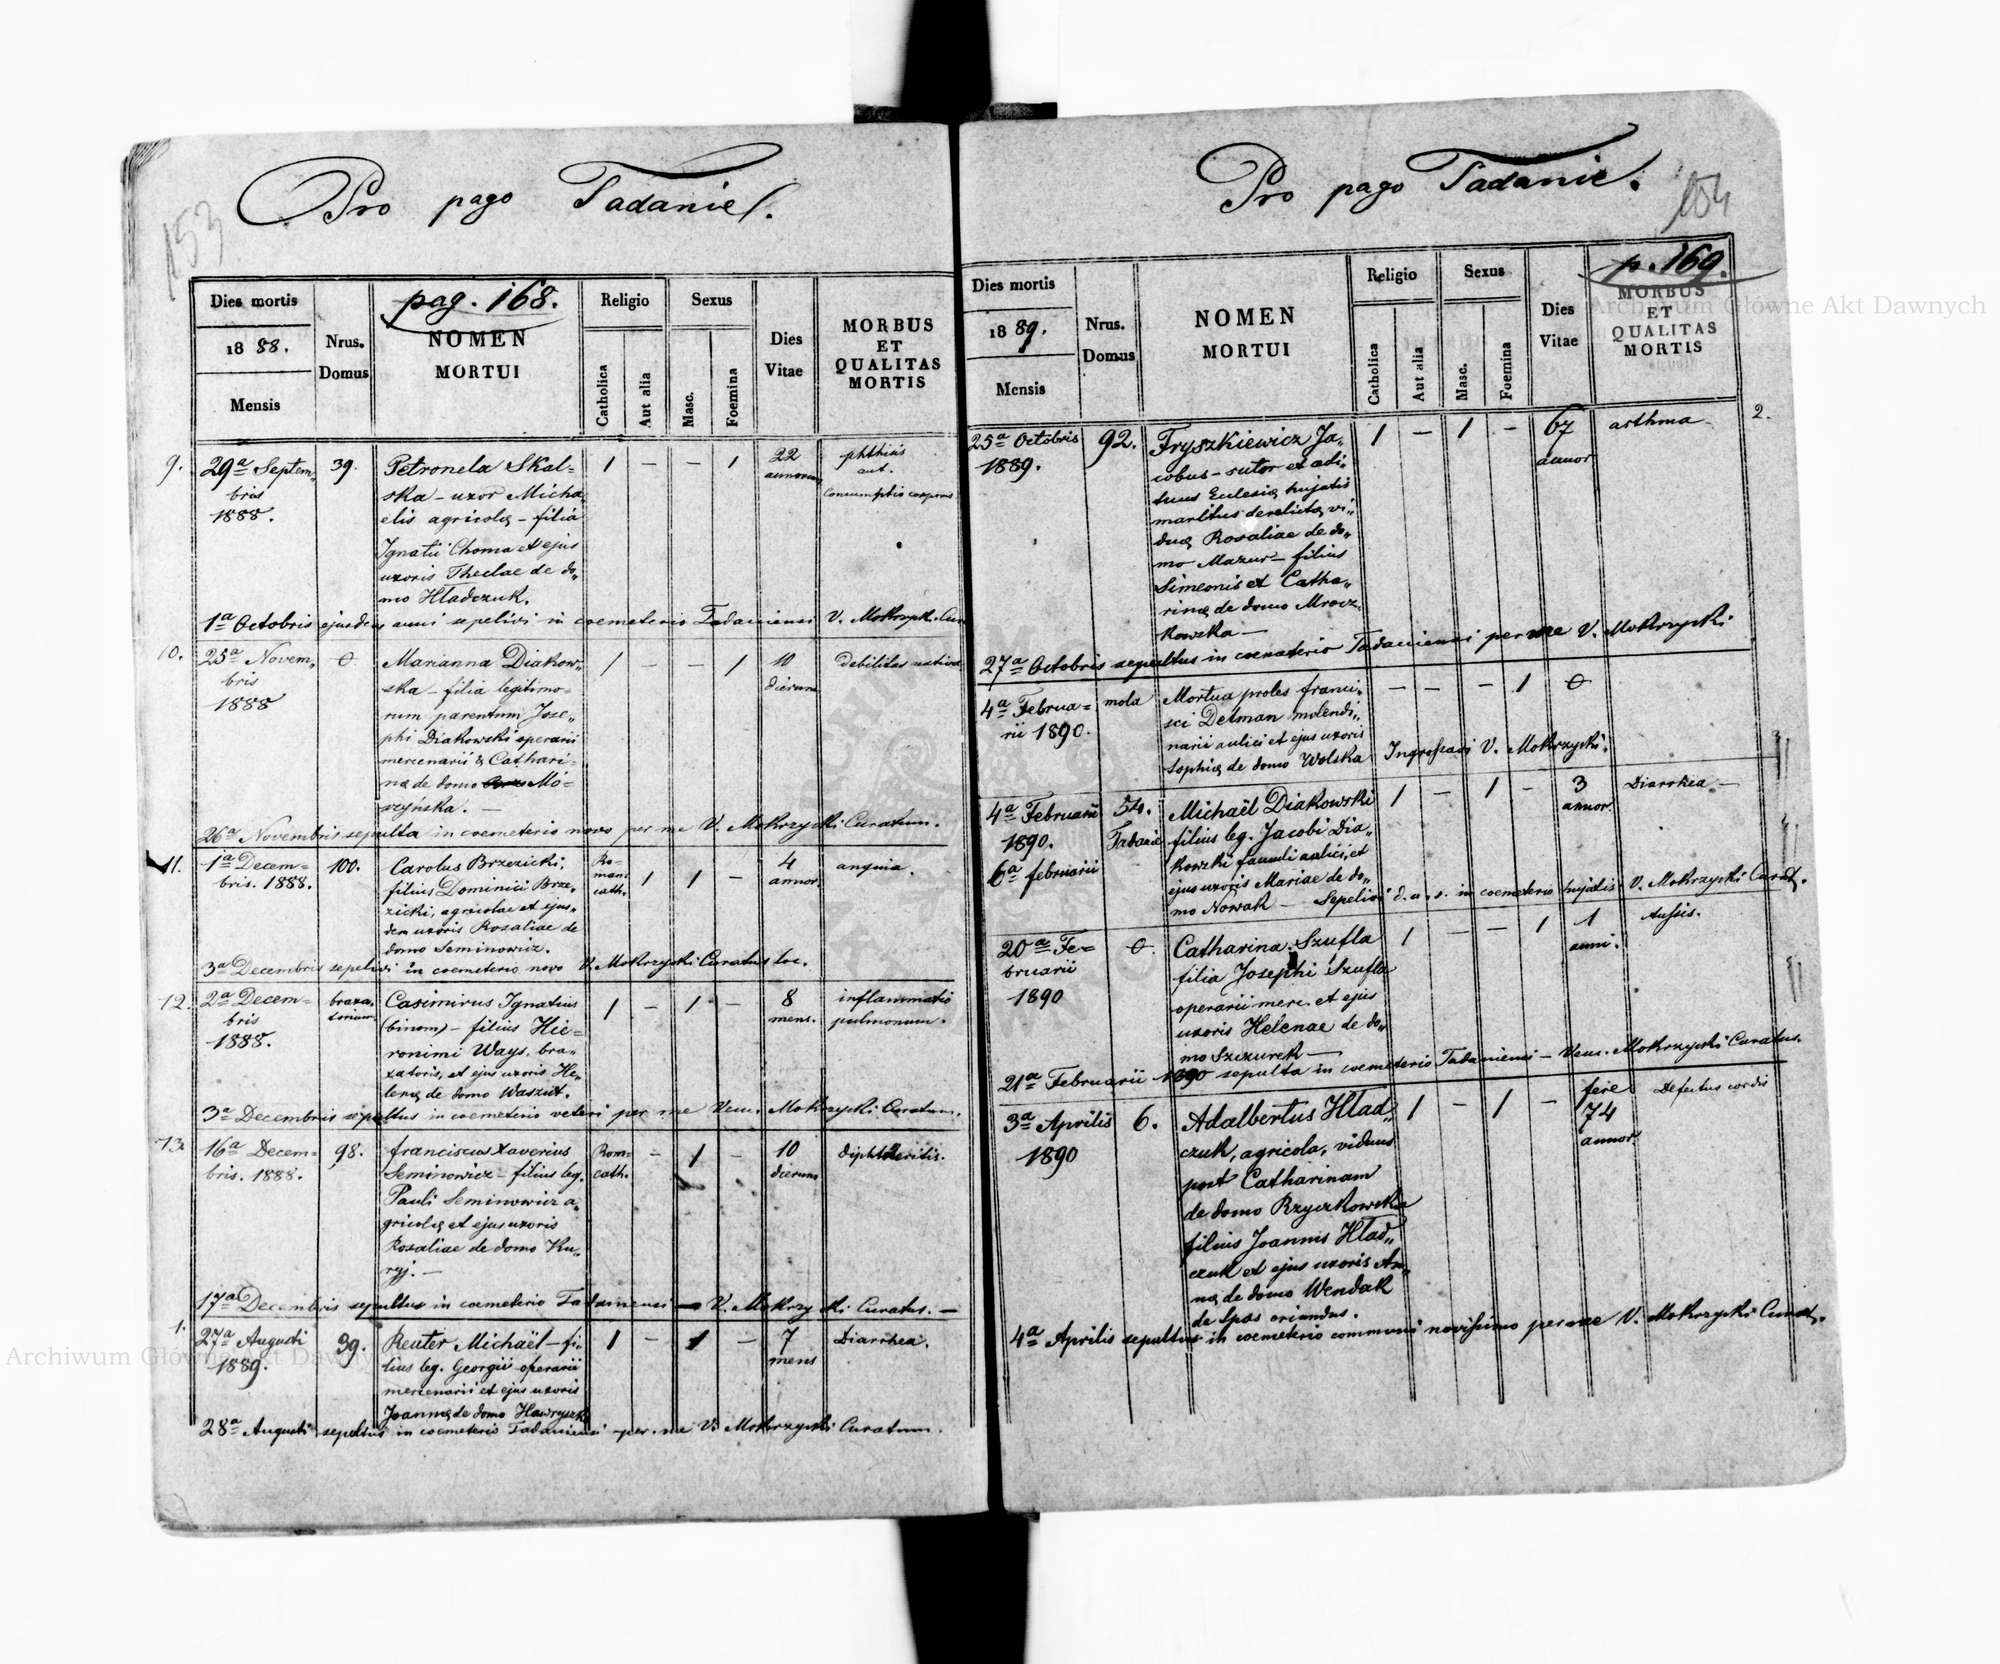 Pro pago Tadanie.
153
pag. 168.
Dies mortis
1888.
Mensis
Nrus.
Domus
NOMEN
MORTUI
Religio
Catholica
Aut alia
Sexus
Masc.
Foemina
Dies
Vitae
MORBUS
ET
QUALITAS
MORTIS
9.
29ª Septem„
bris
1888.
39.
Petronela Skal-
ska - uxor Micha
elis agricolę - filia
Ignatii Choma et ejus
uxoris Theclae de do„
mo Hładczuk.
1 - - 1
22
annorum
phthisis
aut.
consumptio corporis
1ª Octobris ejusdem anni sepelivi in coemeterio Tadaniensi V. Mokrzycki Cur
10.
25ª Novem„
bris
1888
0
Marianna Diakow-
ska - filia legitimo-
rum parentum Jose„
phi Diakowski operarii
mercenarii & Cathari-
nę de domo Mó-
szyńska. -
1 - - 1
10
dierum
debilitas nativa
26ª Novembris sepulta in coemeterio novo per me V. Mokrzycki Curatum.
11.
1ª Decem=
bris. 1888.
100.
Carolus Brzezicki,
filius Dominici Brze-
zicki, agricolae et ejus„
dem uxoris Rosaliae de
domo Seminowicz.
Ro-
man.
cath.
1 1 -
4
annor.
angina.
3ª Decembris sepelivi in coemeterio novo V. Mokrzycki Curatus loc.
12.
2ª Decem=
bris
1888.
braxa„
torium
Casimirus Ignatius
(binom) - filius Hie-
ronimi Ways, bra-
xatoris, et ejus uxoris He„
lenę de domo Waszut.
1 - 1 -
8
mens.
inflammatio
pulmonum.
3ª Decembris sepultus in coemeterio veteri per me Ven. Mokrzycki Curatum.
13.
16ª Decem=
bris. 1888.
98.
Franciscus Xaverius
Seminowicz - filius leg.
Pauli Seminowicz a„
gricolę et ejus uxoris
Rosaliae de domo Ku„
ryj. -
Rom=
cath.
- 1 -
10
dierum
diphtheritis.
17ª Decembris sepultus in coemeterio Tadaniensi - V. Mokrzycki Curatus. -
1.
27ª Augusti
1889.
39.
Reuter Michaël - fi„
lius leg. Georgii operarii
mercenarii et ejus uxoris
Joannę de domo Hawryszk
1 - 1 -
7
mens
Diarrhea.
28ª Augusti sepultus in coemeterio Tadaniensi - per me V. Mokrzycki Curatum.
Pro pago Tadanie.
154
p. 169.
Dies mortis
1889.
Mensis
Nrus.
Domus
NOMEN
MORTUI
Religio
Catholica
Aut alia
Sexus
Masc.
Foemina
Dies
Vitae
MORBUS
ET
QUALITAS
MORTIS
2.
25ª Octobris
1889.
92.
Fryszkiewicz Ja„
cobus - sutor et aedi„
tuus Eclesię hujatis
maritus derelictę vi„
duę Rosaliae de do„
mo Mazur - filius
Simeonis et Catha„
rinę de domo Mrocz„
kowska -
1 - 1 -
67
annor
asthma -
27ª Octobris sepultus in coemeterio Tadaniensi per me V. Mokrzycki
4ª Februa=
rii 1890.
mola
Mortua proles Franci„
sci Detman molendi„
narii aulici et ejus uxoris
Sophię de domo Wolska
- - - 1 0
Ingrossavi V. Mokrzycki.
4ª Februarii
1890.
6ª februarii
54.
Tadanie
Michaël Diakowski
filius leg. Jacobi Dia„
kowski famuli aulici, et
ejus uxoris Mariae de do„
mo Nowak - Sepelivi d. u. s. in coemeterio hujatis V. Mokrzycki Curat.
1 - 1 -
3
annor
Diarrhea. -
20ª Fe-
bruarii
1890
0.
Catharina Szufla
filia Josephi Szufla
operarii merc. et ejus
uxoris Helenae de do„
mo Szczurek -
1 - - 1
1
anni.
tussis.
21ª Februarii 1890 sepulta in coemeterio Tadaniensi - Ven. Mokrzycki Curatus.
3ª Aprilis
1890
6.
Adalbertus Hład„
czuk, agricola, viduus
post Catharinam
de domo Rzyczkowska
filius Joannis Hład„
czuk et ejus uxoris An„
nę de domo Wendak
de Spas oriundus.
1 - 1 -
fere
74
annor
Defectus cordis
4ª Aprilis sepultus in coemeterio communi novissimo per me V. Mokrzycki Curat.
Archiwum Główne Akt Dawnych
Archiwum Główne Akt Dawnych